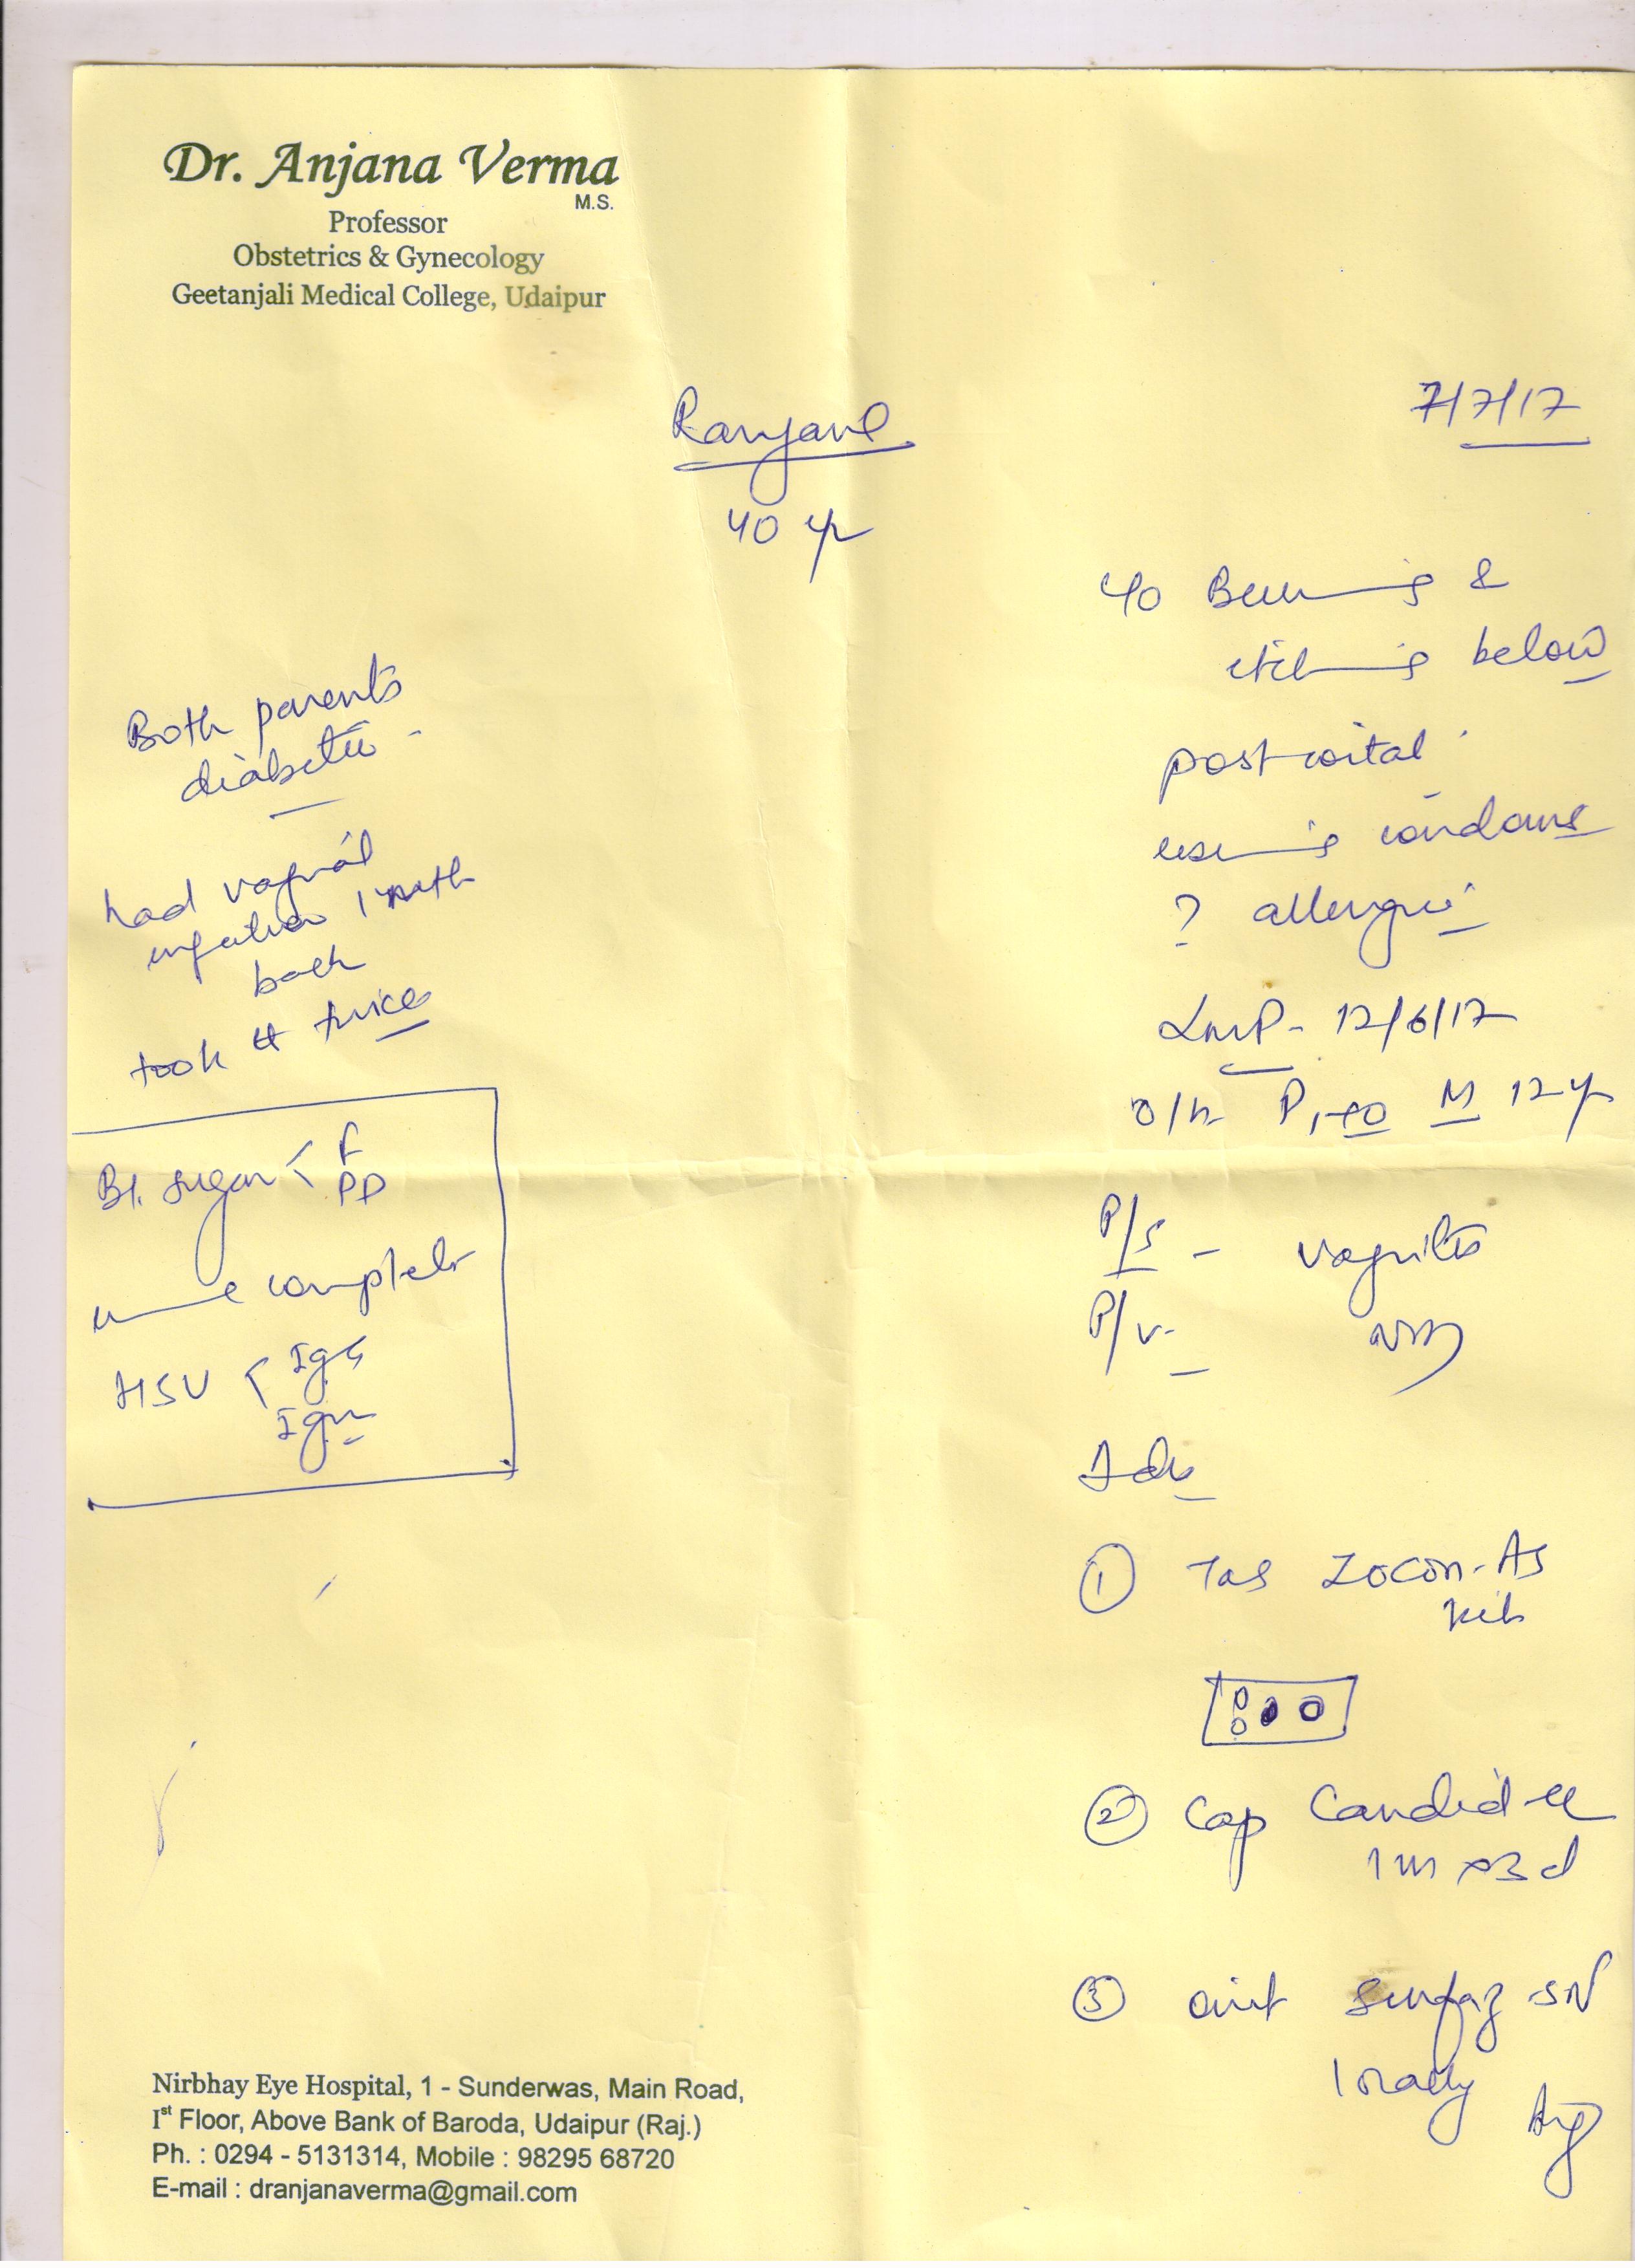 Dr. Anjana Verma
M.S.
Professor
Obstetrics & Gynecology
Geetanjali Medical College, Udaipur
7/7/17
Ranjane
40 yr
Both parents
diabetic
had vaginal
infection 1 month
back
took tt twice
Bl. sugar < F
PP
urine complete
HSV < IgG
IgM
c/o Burning &
itching below
postcoital
using condoms
? allergic
LMP - 12/6/17
o/h M 12 yr
P/s - vaginitis
P/v - NM
Adv
① Tab Zocon-AS
kit
② Cap Candid-CL
x3d
③ oint Surfaz-SN
locally
Nirbhay Eye Hospital, 1 - Sunderwas, Main Road,
Ist Floor, Above Bank of Baroda, Udaipur (Raj.)
Ph. : 0294 - 5131314, Mobile : 98295 68720
E-mail : dranjanaverma@gmail.com